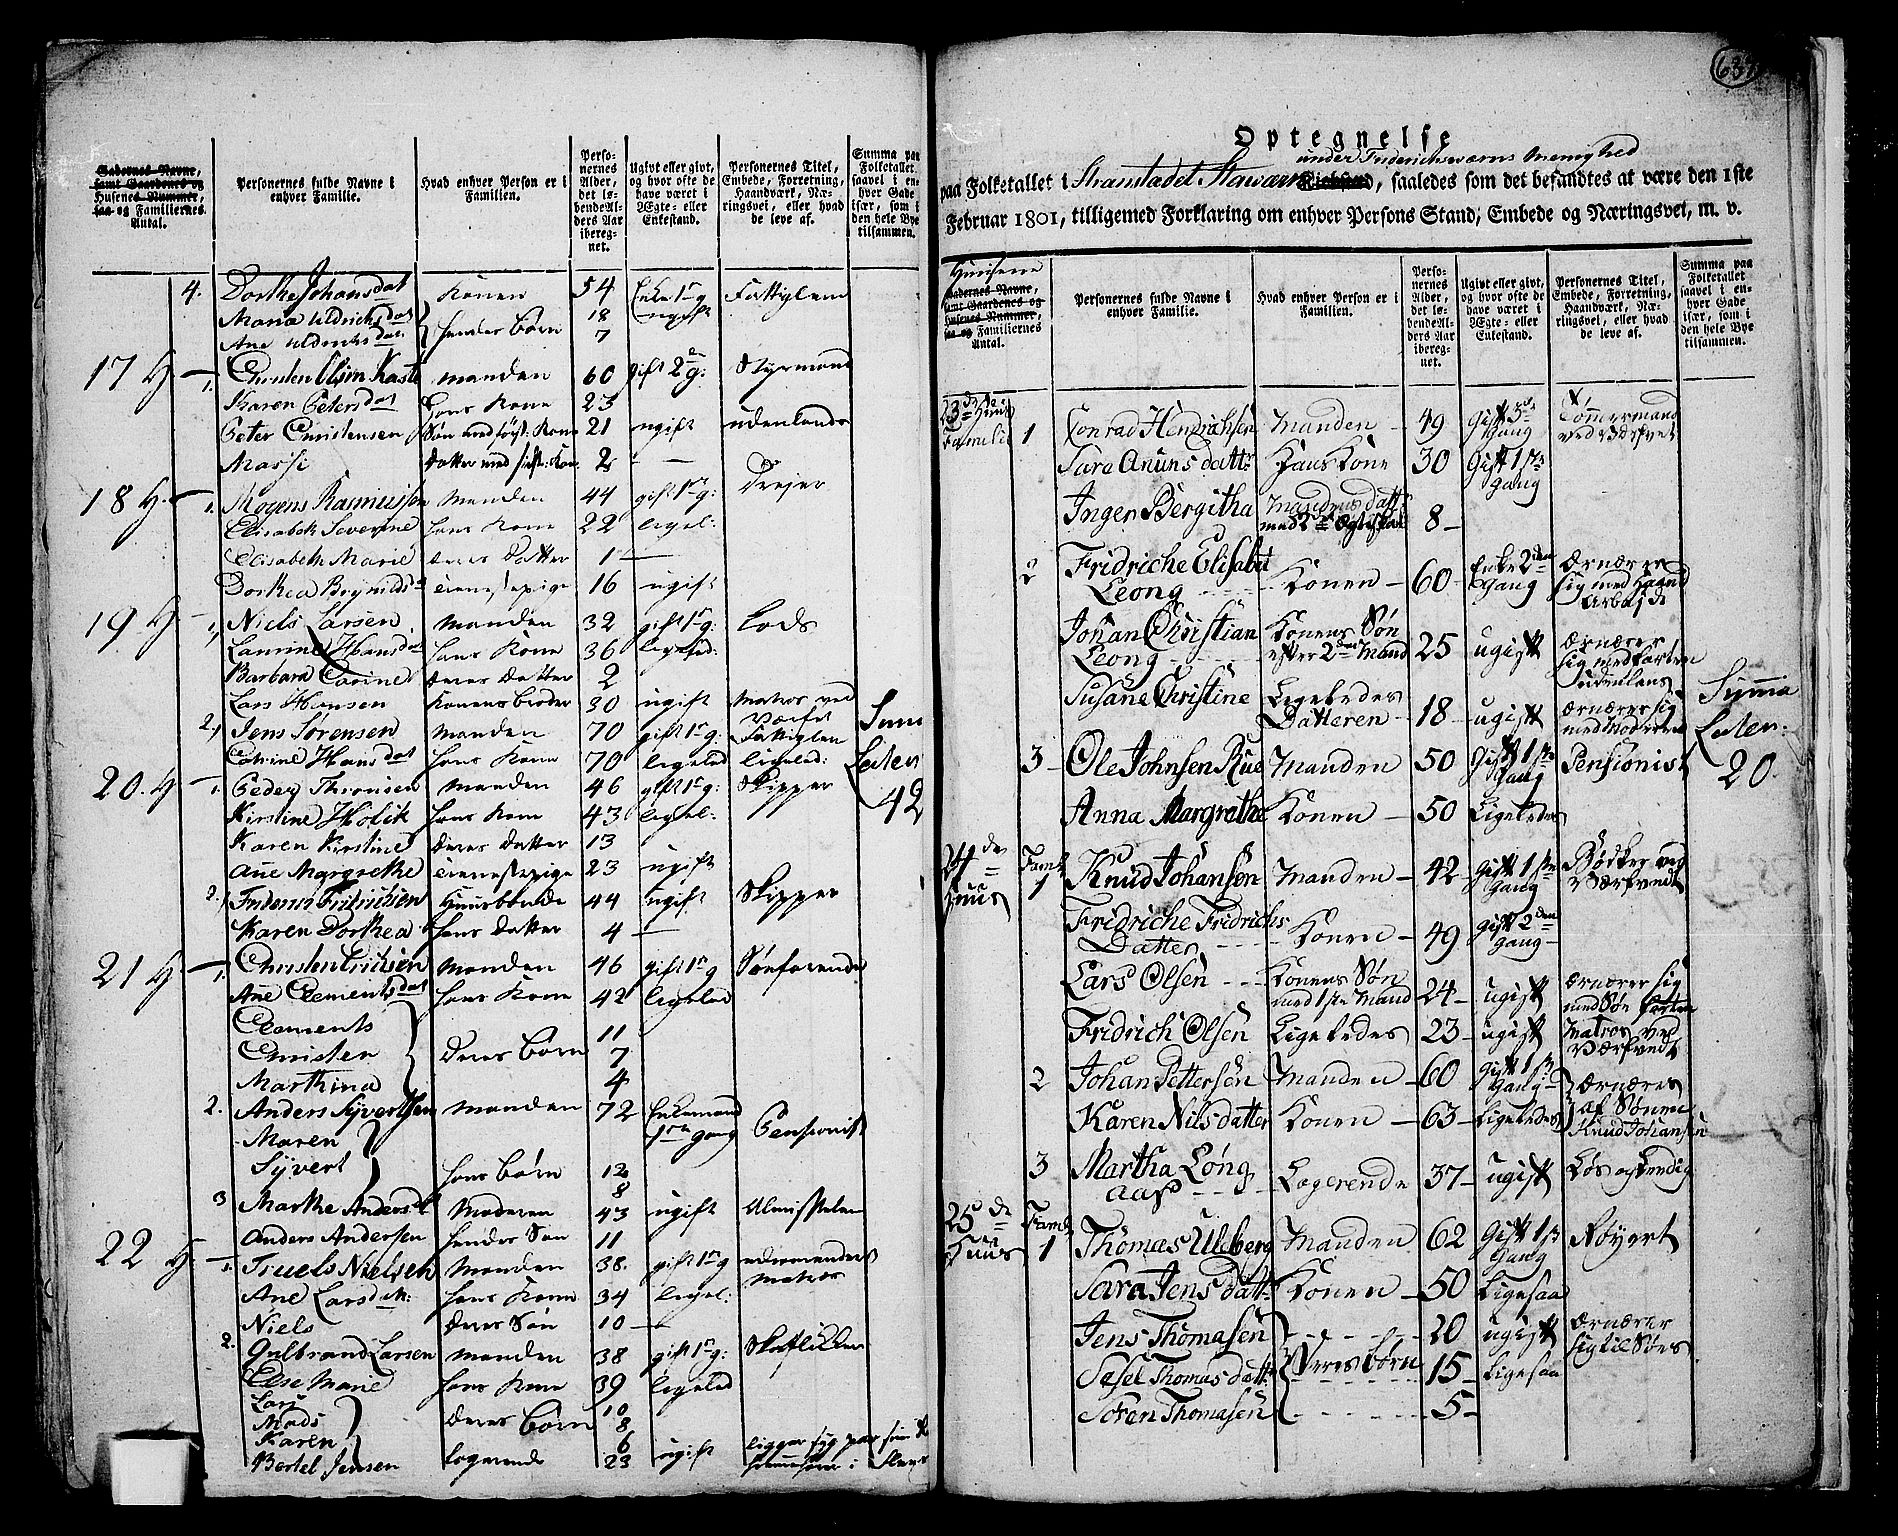 Gadernes Navne, samt Gaardenes og Husenes Nummer, saa og Familiernes Antal.
Personernes fulde Navne i enhver Familie.
Hvad enhver Person er i Familien.
Personernes Alder, det løbendeAlders Aar iberegnet.
Ugivt eller givt, og hvor ofte de have været i Ægte- eller Enkestand.
Personernes Titel, Embede, Forretning, Haandværk, Næringsvei, eller hvad de leve af.
Summa paa Folketallet saavel i enhver Gade især, som i den hele Bye tilsammen.
4. Dorthe Johansdat Konen 54 Enke 1 g Fattiglem
Maria Uldrichsdat 18 ugift
Ane Uldrichsdat hendes Børn 7
17 H 1. Christen Manden 60 gift 2 g: Styrmand
Karen Petersdat Hans Kone 23
Peter Christensen Søn med først: Kone 21 ugift udenlands
Massi Datter med sidst: Kon 2 —
18 H 1. Mogens Rasmussen Manden 44 gift 1 g: Drejer
Elisabeth Severine hans Kone 22 ligel:
Elisabeth Marie deres Datter 1 —
Dorthea Brynildsd tienestepige 16 ugift
19 H 1, Niels Larsen Manden 32 gift 1 g: Lods
Laurine Hansdat hans Kone 36 ligeled:
Barbara Carine deres Datter 2
Lars Hansen Konens broder 30 ugift Matros ved Værfet
2, Jens Sørensen Manden 70 gift 1 g: Fattiglem
Catrine Hansdat hans Kone 70 ligeled ligeled:
20 H 1. Peder Thronsen Manden 46 gift 1 g: Skipper
Kirstine Holik hans Kone 43 ligel:
Karen Kirstine Deres Datter 13
Ane Margrethe tienestepige 23 ugift
2. Fridrich Fridrichsen Huusbonde 44 ugift Skipper
Karen Dorthea hans Datter 4 —
21 H 1. Christen Manden 46 gift 1 g Søefarende
Ane Clementsdat hans Kone 42 ligeled
Clements 11
Christen Deres Børn 7
Marthina 4
2. Anders Syvertsen Manden 72 Enkemand 1 gang Pensionist
Maren
Syvert hans Børn 12 8
3 Marthe Andersd Moderen 43 ugift Almisselem
Anders Andersen hendes Søn 11
22 H 1. Truels Nielsen Manden 38. gift 1 g Matros
Ane Larsdat: hans Kone 34 ligel:
Niels deres Søn 10 —
2. Gulbrand Larsen Manden 38 gift 1 g:
Else Marie hans Kone 39 ligeled
Lars 10
Mads deres Børn 8
Karen 6
Bertel Jensen logerende 23 ugift ligger syg
Sum
Leden
42
638
Optegnelse
under Friderichsværns Menighed
paa Folketallet i Strandstædet Staværn Kirkested, saaledes som det befandtes at være den 1ste
Februar 1801, tilligemed Forklaring om enhver Persons Stand, Embede og Næringsvei, m. v.
Husene
Gadernes Navne, samt Gaardenes og Husenes Nummer, saa og Familiernes Antal.
Personernes fulde Navne i enhver Familie.
Hvad enhver Person er i Familien.
Personernes Alder, det løbendeAlders Aar iberegnet.
Ugivt eller givt, og hvor ofte de have været i Ægte- eller Enkestand.
Personernes Titel, Embede, Forretning, Haandværk, Næringsvei, eller hvad de leve af.
Summa paa Folketallet saavel i enhver Gade især, som i den hele Bye tilsammen.
23de Huus Familie 1 Conrad Hendrichsen Manden 49 Gift 3 Gang Tømmermand ved Værfvet
Sara Anunsdattr Hans Kone 30 Gift 1ste gang
Inger Bergitha Mandens datt med 2 Ægteskab 8
2 Fridriche Elisabet Leong Konen 60 Enke 2den Gang Ærnærer sig med Haand Arbejde
Johan Christian Leong Konens Søn efter 2den Mand 25 ugift Ærnærer sig med farten udenlans
Susane Christine Ligeledes Datteren 18 ugift Ærnærer sig med Moderen
3 Ole Johnsen Rue Manden 50 Gift 1ste Gang Pensionist
Anna Margrethe Konen 50 Ligeledes
Summa
Leden:
20.
24de Huus Faml 1 Knud Johansen Manden 42 Gift 1ste gang Bødker ved Værfvedt
Fridriche Fridrichs Datter Konen 49 Gift 2den Gang
Lars Olsen Konens Søn med 1ste Mand 24 ugift Ærnærer sig med Søn farten
Fridrich Olsen Ligeledes 23 ugift Matros ved Værfvedt
2 Johan Pettersen Manden 60 Gift 1 Gang Ærnæres af Sønen Knud Johansen
Karen Nilsdatter Konen 63 Ligeledes
3 Martha Løng aas Logerende 37 ugift Løs og Lendig
25de Huus Faml 1 Thomas Uleberg Manden 62 Gift 1 Gang Røyert
Sara Jensdatt Konen 50 Ligesaa
Jens Thomasen 20 ugift Ærnærer sig til Søes
Sesel Thomasdatt Deres børn 15 Ligesaa
Soren Thomasen 5